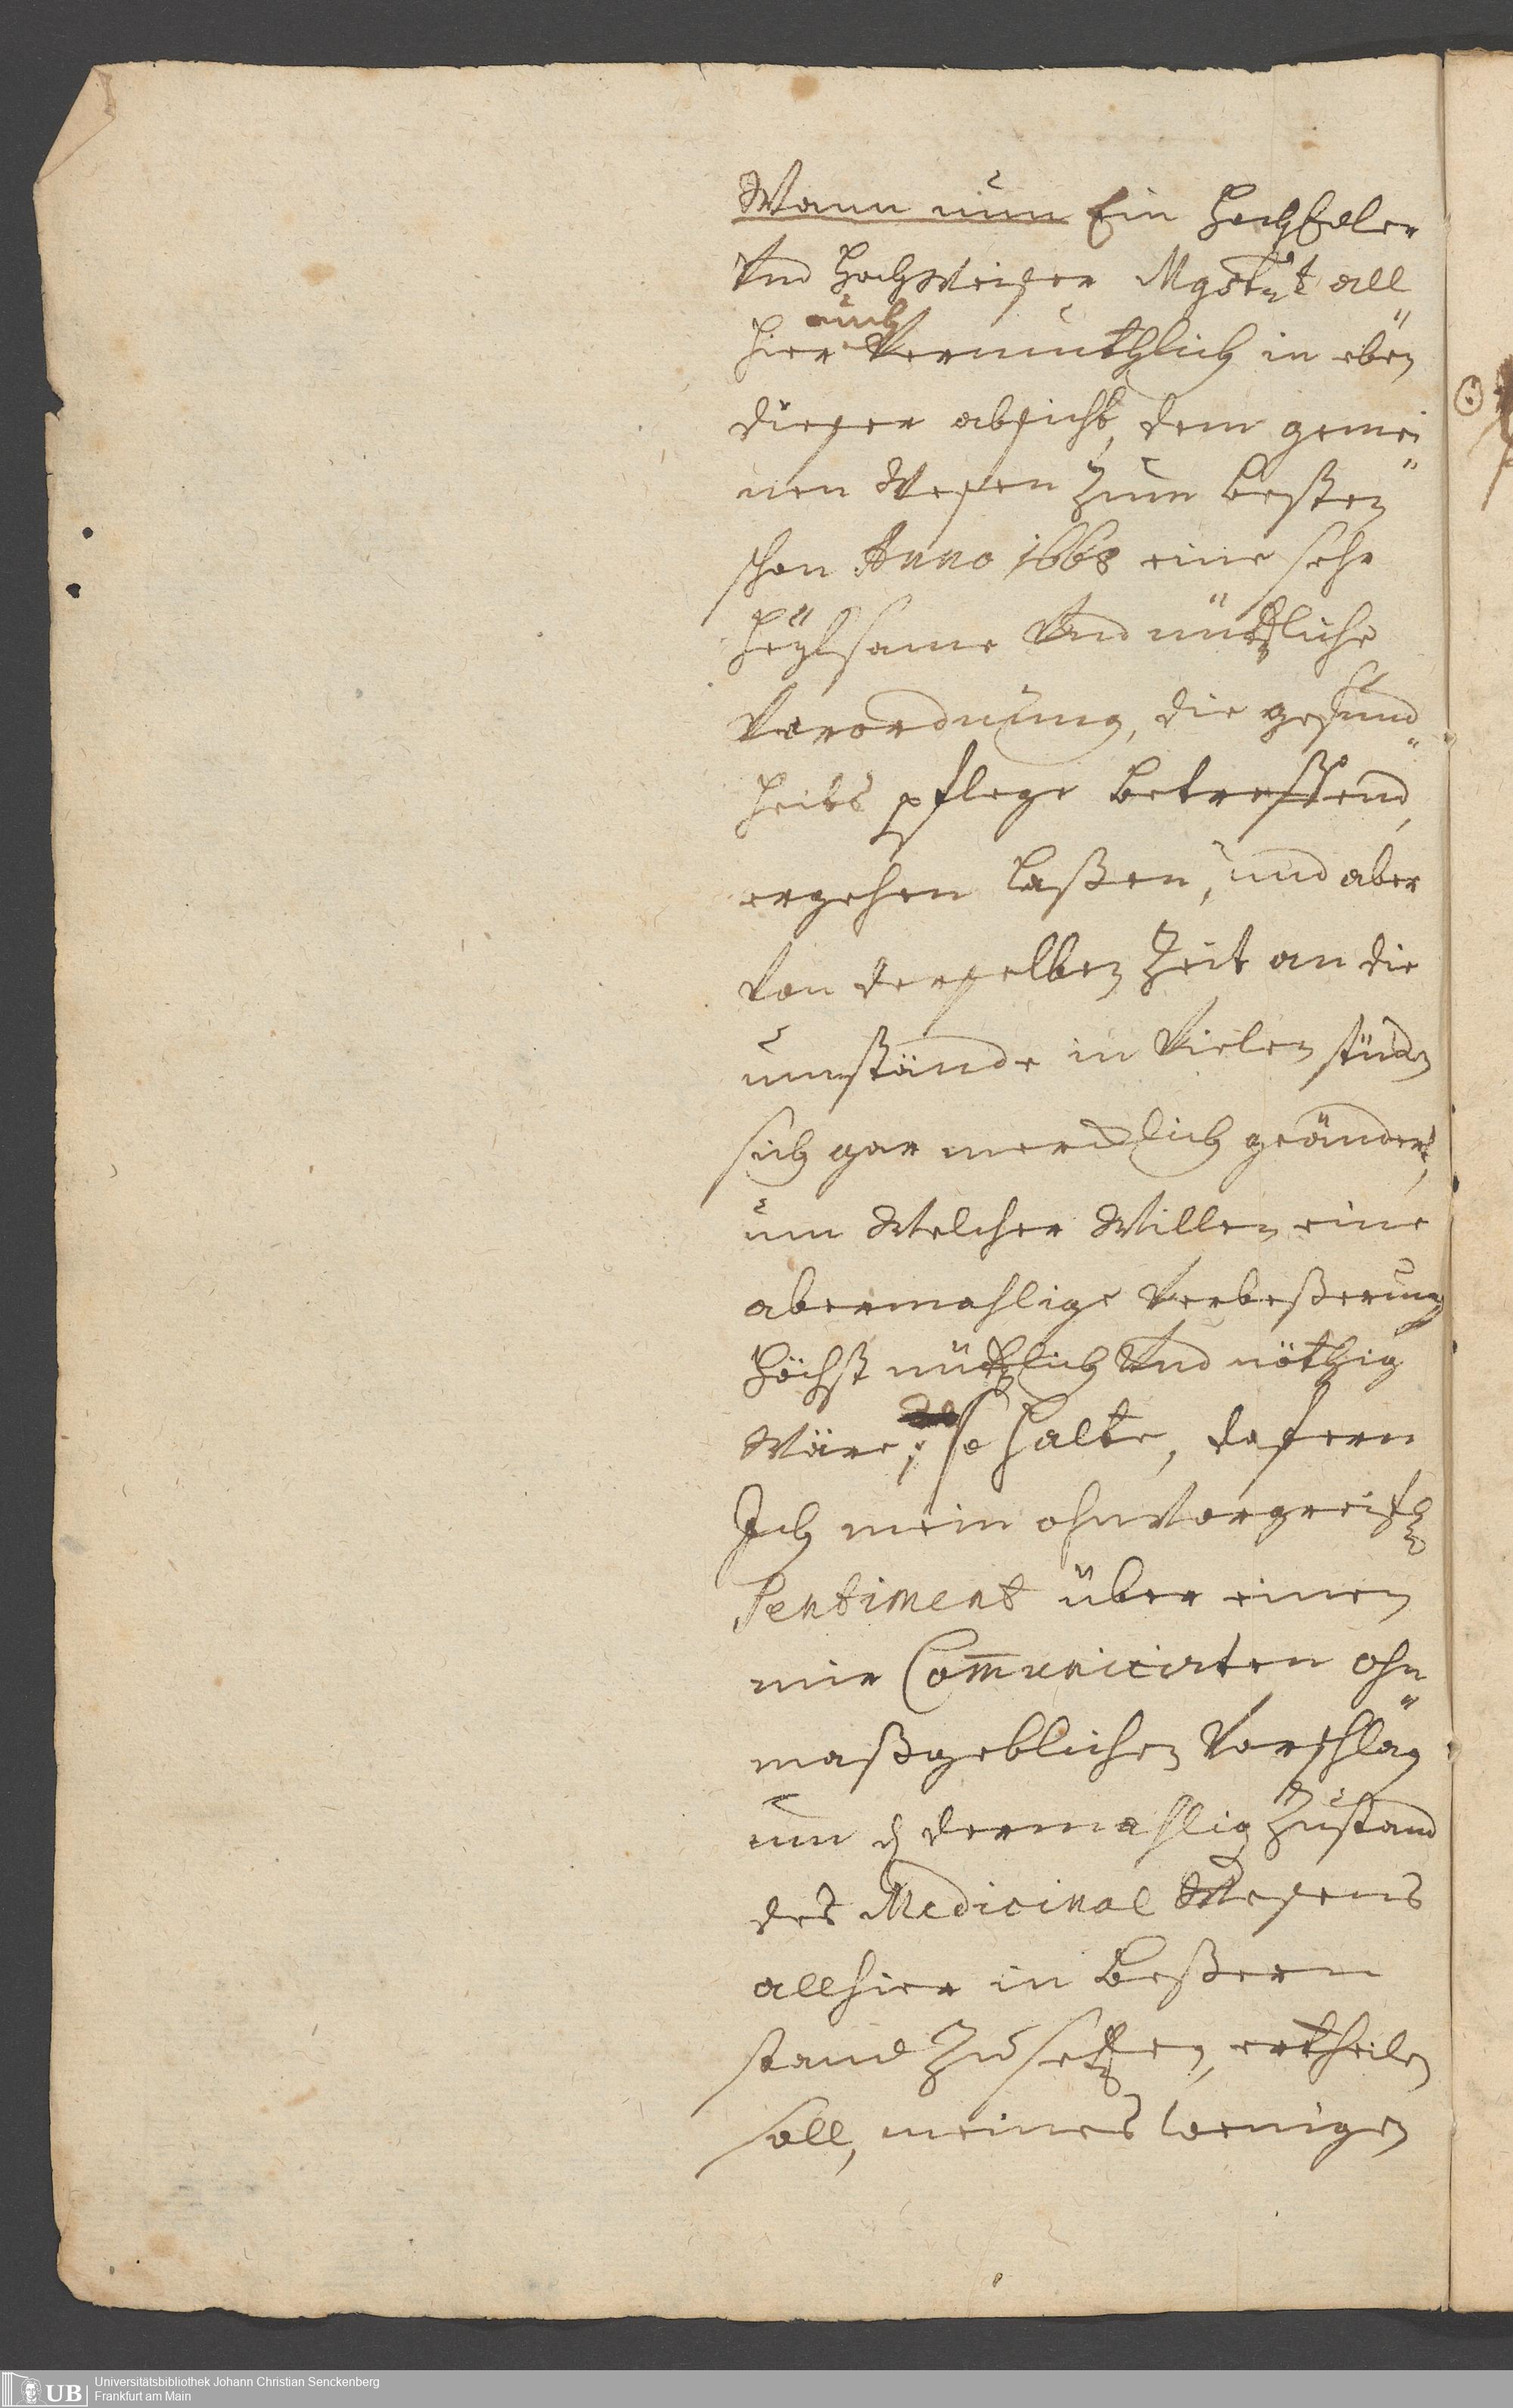 Wann nun Ein HochEdler
Und HochWeiser Mgstrt all„
hier auch Vermuthlich in eben
dieser absicht, dem gemei„
nen Wesen zum besten
schon Anno 1668 eine sehr
heylsame Und nützliche
Verordnung, die gesund„
heits pflege betreffend,
ergehen laßen, und aber
Von derselben Zeit an die
umstände in Vielen stücken
sich gar mercklich geändert,
um Welcher Willen eine
abermahlige Verbeßerung
höchst nützlich Und nöthig
Wäre; so halte, dafern
Ich mein ohnVorgreifl
Sentiment über einen
mir Com̅unicirten ohn„
maßgeblichen Vorschlag
um d dermahlig Zustand
des Medicinal Wesens
allhier in beßern
stand zu setzen, ertheilen
soll, meines wenigen
Universitätsbibliothek Johann Christian Senckenberg
UB Frankfurt am Main